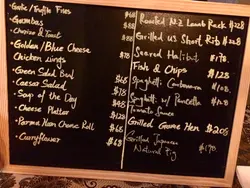 Garlic/Truffle Fries $68
Gambas $88
Chorizo & Toast
Golden/Blue Cheese
Chicken Wings
Green Salad Bowl $68
Caesar Salad $78
Soup of the Day $48
Cheese Platter $128
Parma Ham Cheese Roll $68
Curryflower $68
Roasted NZ Lamb Rack $228
Grilled US Short Rib $228
Seared Halibut $178
Fish & Chips $128
Spaghetti Carbonara $128
Spaghetti w/ Pancetta $128
Tomato Sauce
Grilled Game Hen $208
Grilled Japanese
Natural Pig $178